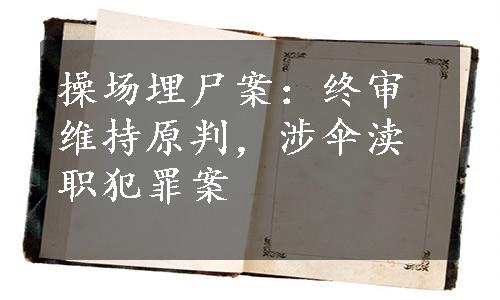 操场埋尸案：终审
维持原判，涉伞渎
职犯罪案